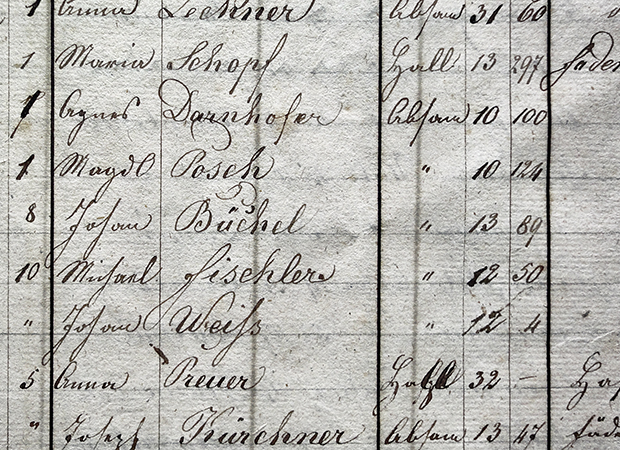 1 Anna Leckner Absam 31 60
1 Maria Schopf Hall 13 297
1 Agnes Darnhofer Absam 10 100
1 Magdl Posch " 10 124
8 Johan Büchel " 13 89
10 Michael Fischler " 12 50
" Johan Weiß " 12 4
5 Anna Preuer Hall 32 –
" Joseph Kürchner Absam 13 47